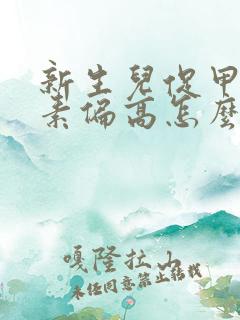 新生兒促甲
素偏高怎麼
嘎隆拉山
未经同意禁止转载